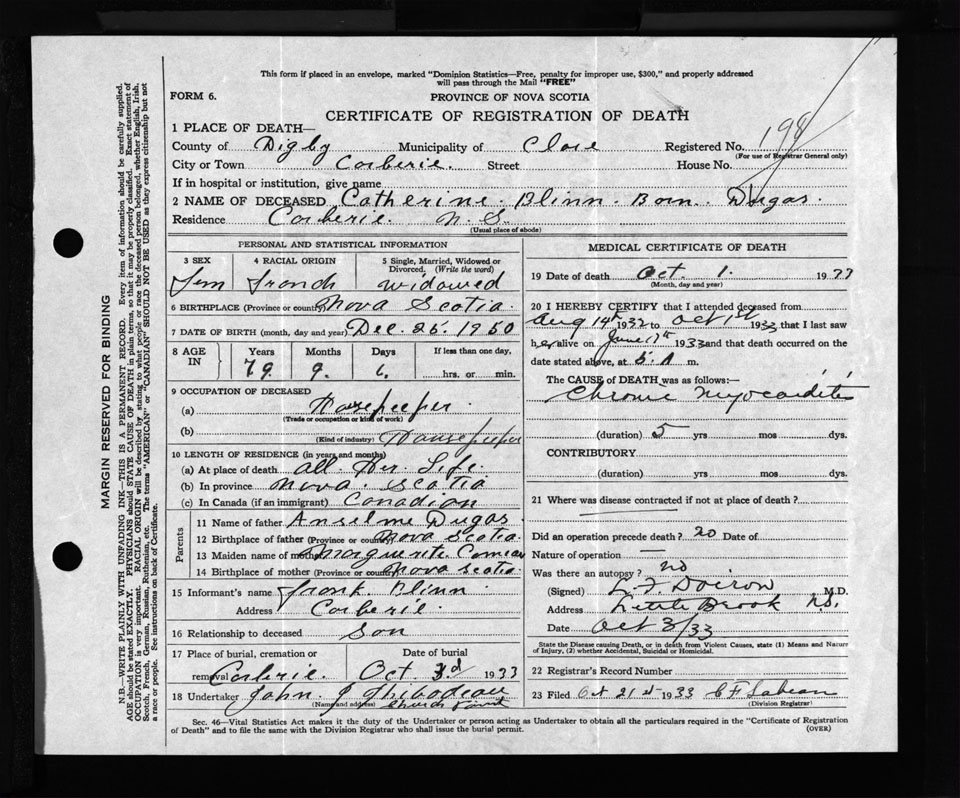 This form if placed in an envelope, marked "Dominion Statistics—Free, penalty for improper use, $300," and properly addressed
will pass through the Mail "FREE"
FORM 6.
PROVINCE OF NOVA SCOTIA
CERTIFICATE OF REGISTRATION OF DEATH
1 PLACE OF DEATH—
County of Digby Municipality of Clare Registered No. 198
(For use of Registrar General only)
City or Town Corberie. Street House No.
If in hospital or institution, give name
2 NAME OF DECEASED Catherine Blinn Born Dugas.
Residence Corberie N.S.
(Usual place of abode)
PERSONAL AND STATISTICAL INFORMATION
3 SEX 4 RACIAL ORIGIN 5 Single, Married, Widowed or
Divorced. (Write the word)
Fem French Widowed
6 BIRTHPLACE (Province or country) Nova Scotia.
7 DATE OF BIRTH (month, day and year) Dec. 25. 1950
8 AGE IN Years Months Days If less than one day,
79 9. 6. hrs. or min.
9 OCCUPATION OF DECEASED
(a) Housekeeper.
(Trade or occupation or kind of work)
(b) Housekeeper
(Kind of industry)
10 LENGTH OF RESIDENCE (in years and months)
(a) At place of death all Her Life.
(b) In province Nova Scotia
(c) In Canada (if an immigrant) Canadian
Parents
11 Name of father Anselme Dugas.
12 Birthplace of father (Province or country) Nova Scotia.
13 Maiden name of mother Marguerite Comeau
14 Birthplace of mother (Province or country) Nova Scotia
15 Informant's name Frank Blinn
Address Corberie.
16 Relationship to deceased Son
17 Place of burial, cremation or Date of burial
removal Corberie. Oct 3d 1933
18 Undertaker John. J Thibodeau
(Name and address) Church Point
MEDICAL CERTIFICATE OF DEATH
19 Date of death Oct. 1. 1933
(Month, day and year)
20 I HEREBY CERTIFY that I attended deceased from
Aug 14th 1932 to Oct 1st 1933 that I last saw
her alive on June 17th 1933 and that death occurred on the
date stated above, at 5. A m.
The CAUSE of DEATH was as follows:—
Chronic Myocarditis
(duration) 5 yrs mos dys.
CONTRIBUTORY
(duration) yrs. mos. dys.
21 Where was disease contracted if not at place of death?
Did an operation precede death? no Date of
Nature of operation —
Was there an autopsy? no
(Signed) L. F. Doiron M.D.
Address Little Brook N.S.
Date Oct 3/33
State the Disease causing Death, or in death from Violent Causes, state (1) Means and Nature
of Injury, (2) whether Accidental, Suicidal or Homicidal.
22 Registrar's Record Number
23 Filed Oct 21st 1933
(Division Registrar)
Sec. 46—Vital Statistics Act makes it the duty of the Undertaker or person acting as Undertaker to obtain all the particulars required in the "Certificate of Registration
of Death" and to file the same with the Division Registrar who shall issue the burial permit. (OVER)
MARGIN RESERVED FOR BINDING
N.B.—WRITE PLAINLY WITH UNFADING INK—THIS IS A PERMANENT RECORD. Every item of information should be carefully supplied.
AGE should be stated EXACTLY. PHYSICIANS should STATE CAUSE OF DEATH in plain terms, so that it may be properly classified. Exact statement of
OCCUPATION is very important. RACIAL ORIGIN will be described by stating to what people or race the deceased person belonged, whether English, Irish,
Scotch, French, German, Russian, Ruthenian, etc. The terms "AMERICAN" or "CANADIAN" SHOULD NOT BE USED as they express citizenship but not
a race or people. See instructions on back of Certificate.